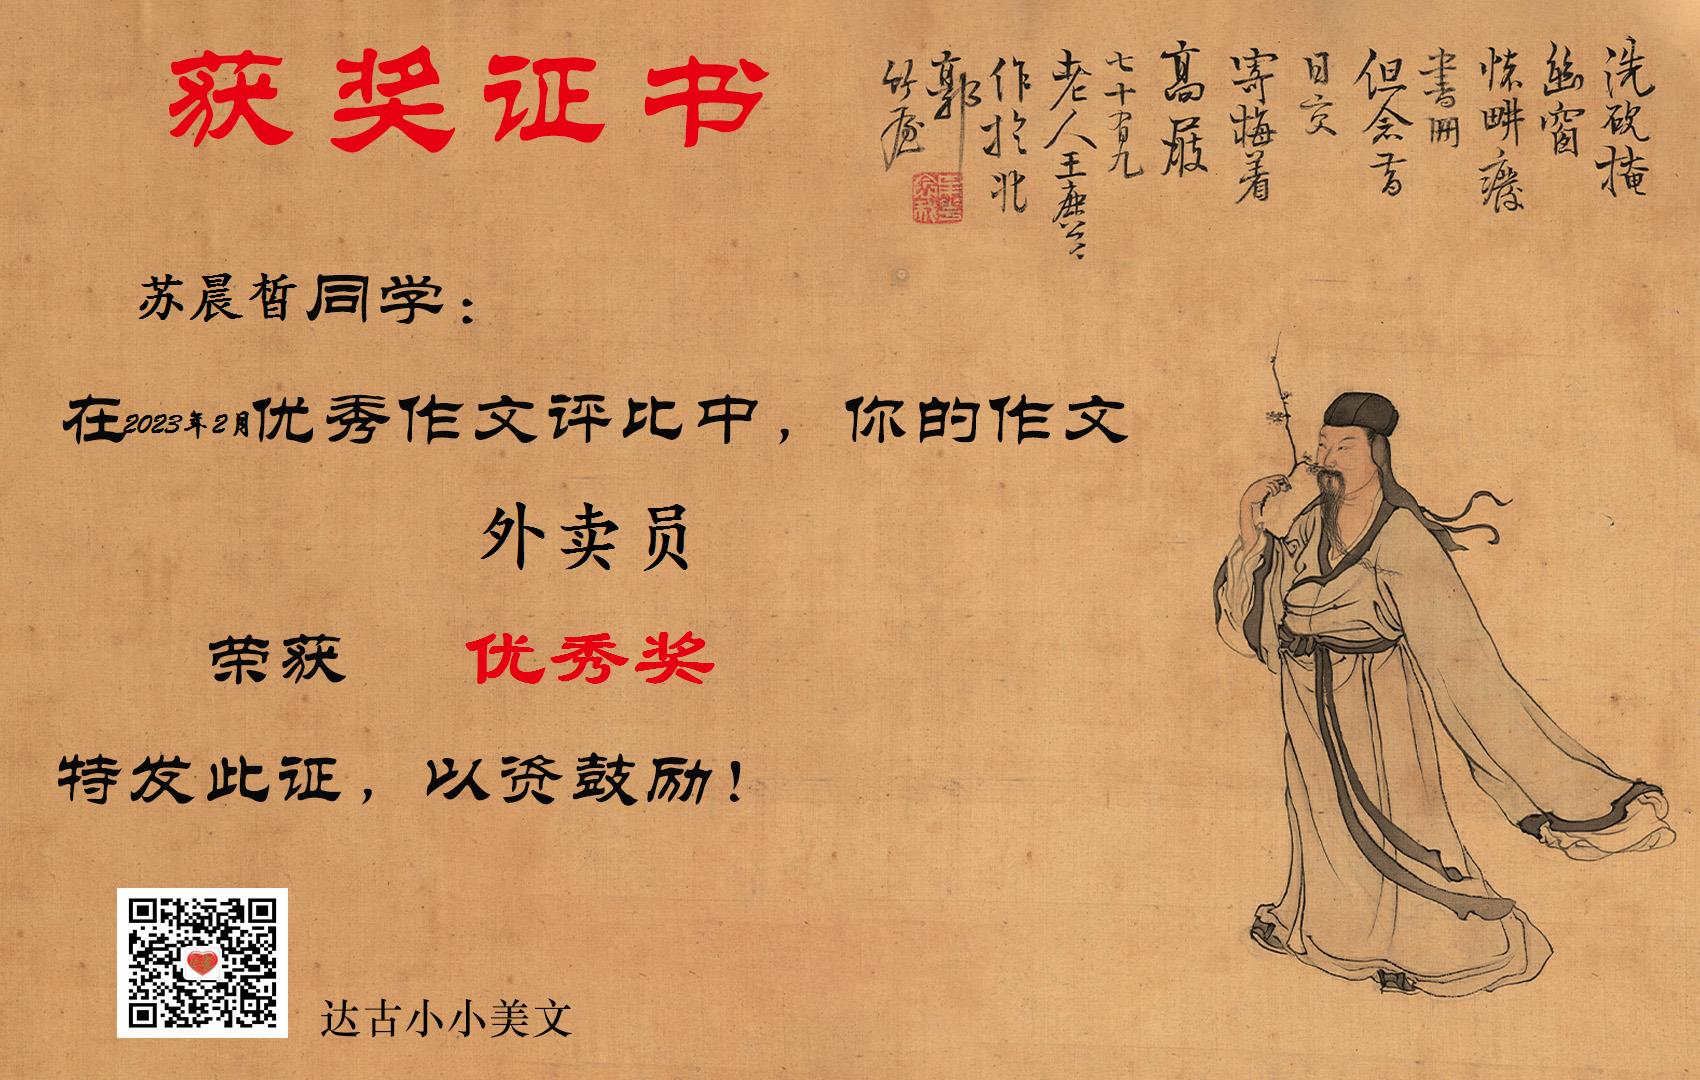 获奖证书
洗砚掩
幽窗
怀畊
書冊
但念昔
日交
寄梅着
高
七十有九
老人王
作於北
郭
竹
苏晨皙同学：
在2023年2月优秀作文评比中，你的作文
外卖员
荣获 优秀奖
特发此证，以资鼓励！
达古小小美文